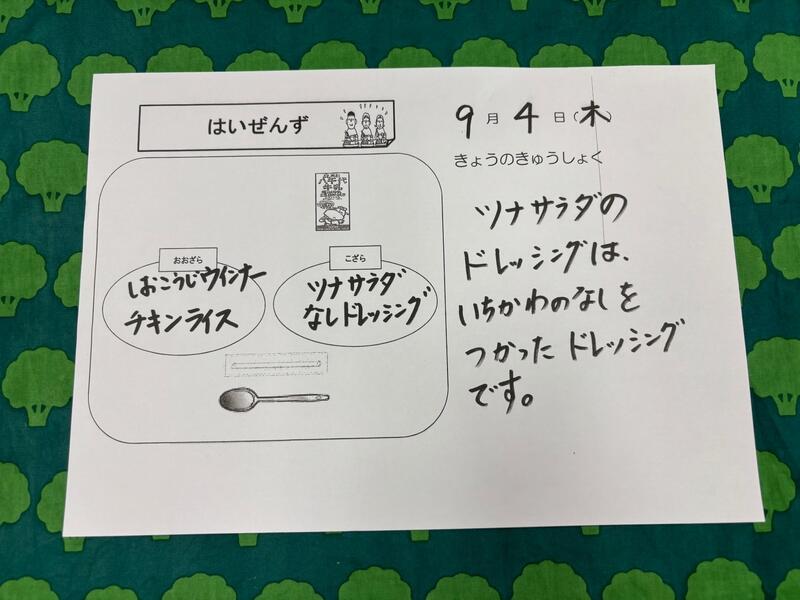 はいぜんず
おおざら
しおこうじウインナー
チキンライス
こざら
ツナサラダ
なしドレッシング
9月4日(木)
きょうのきゅうしょく
ツナサラダの
ドレッシングは、
いちかわのなしを
つかったドレッシング
です。